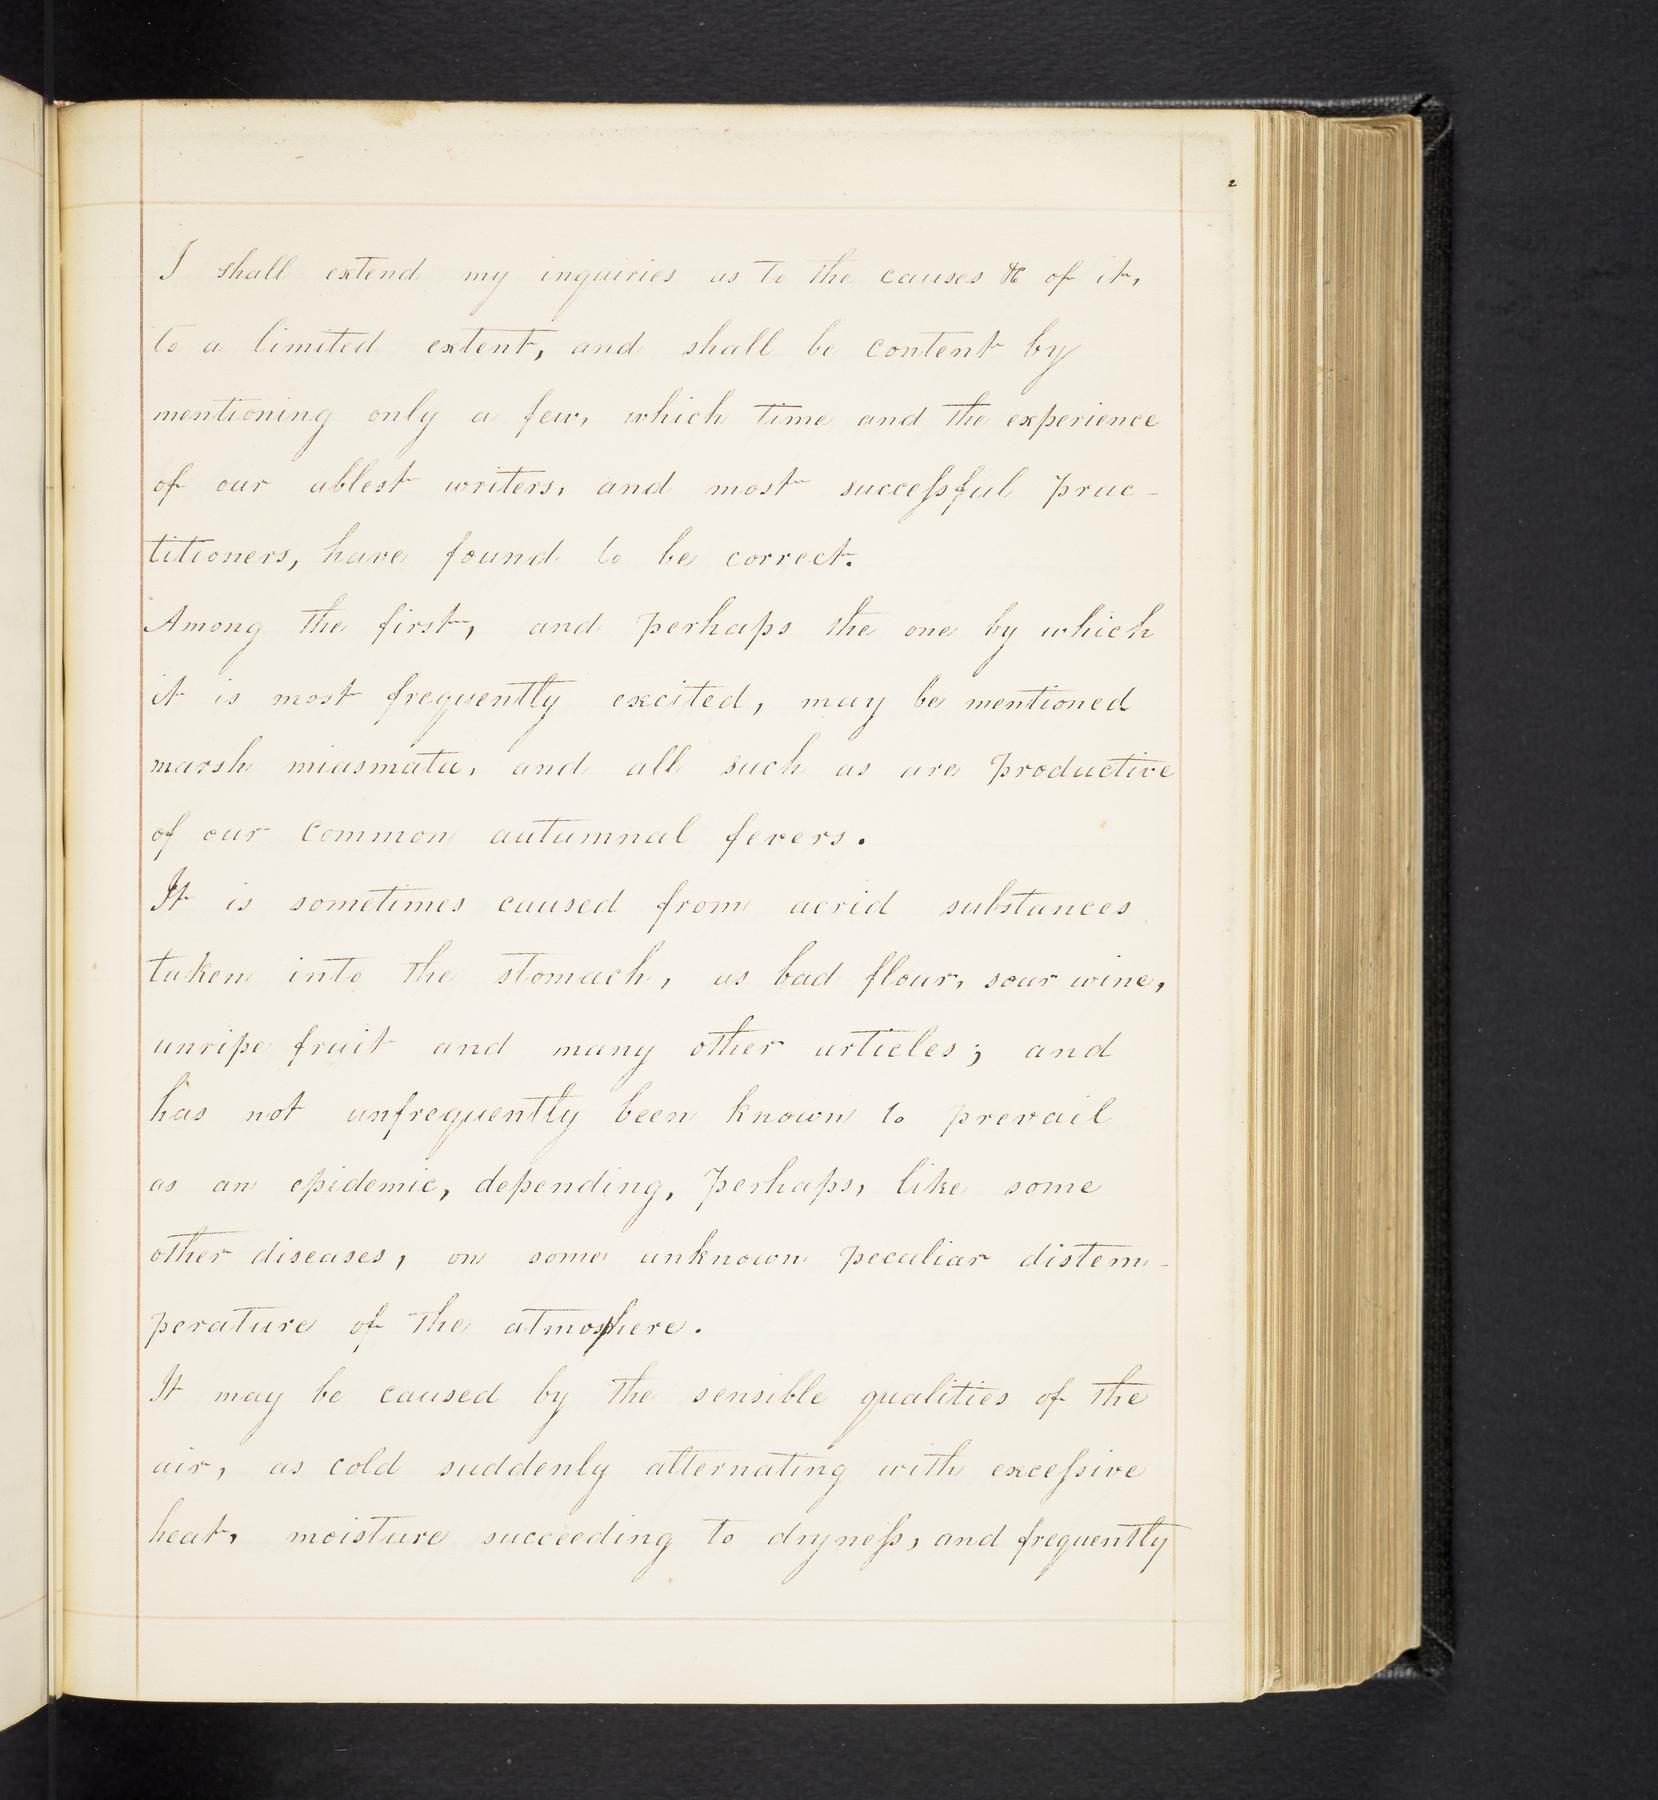 2
I shall extend my inquiries as to the causes &c of it,
to a limited extent, and shall be content by
mentioning only a few, which time and the experience
of our ablest writers, and most succeſsful prac-
titioners, have found to be correct.
Among the first, and perhaps the one by which
it is most frequently excited, may be mentioned
marsh miasmata, and all such as are productive
of our common autumnal fevers.
It is sometimes caused from acrid substances
taken into the stomach, as bad flour, sour wine,
unripe fruit and many other articles; and
has not unfrequently been known to prevail
as an epidemic, depending, perhaps, like some
other diseases, on some unknown peculiar distem-
perature of the atmosphere.
It may be caused by the sensible qualities of the
air, as cold suddenly alternating with exceſsive
heat, moisture succeeding to dryneſs, and frequently